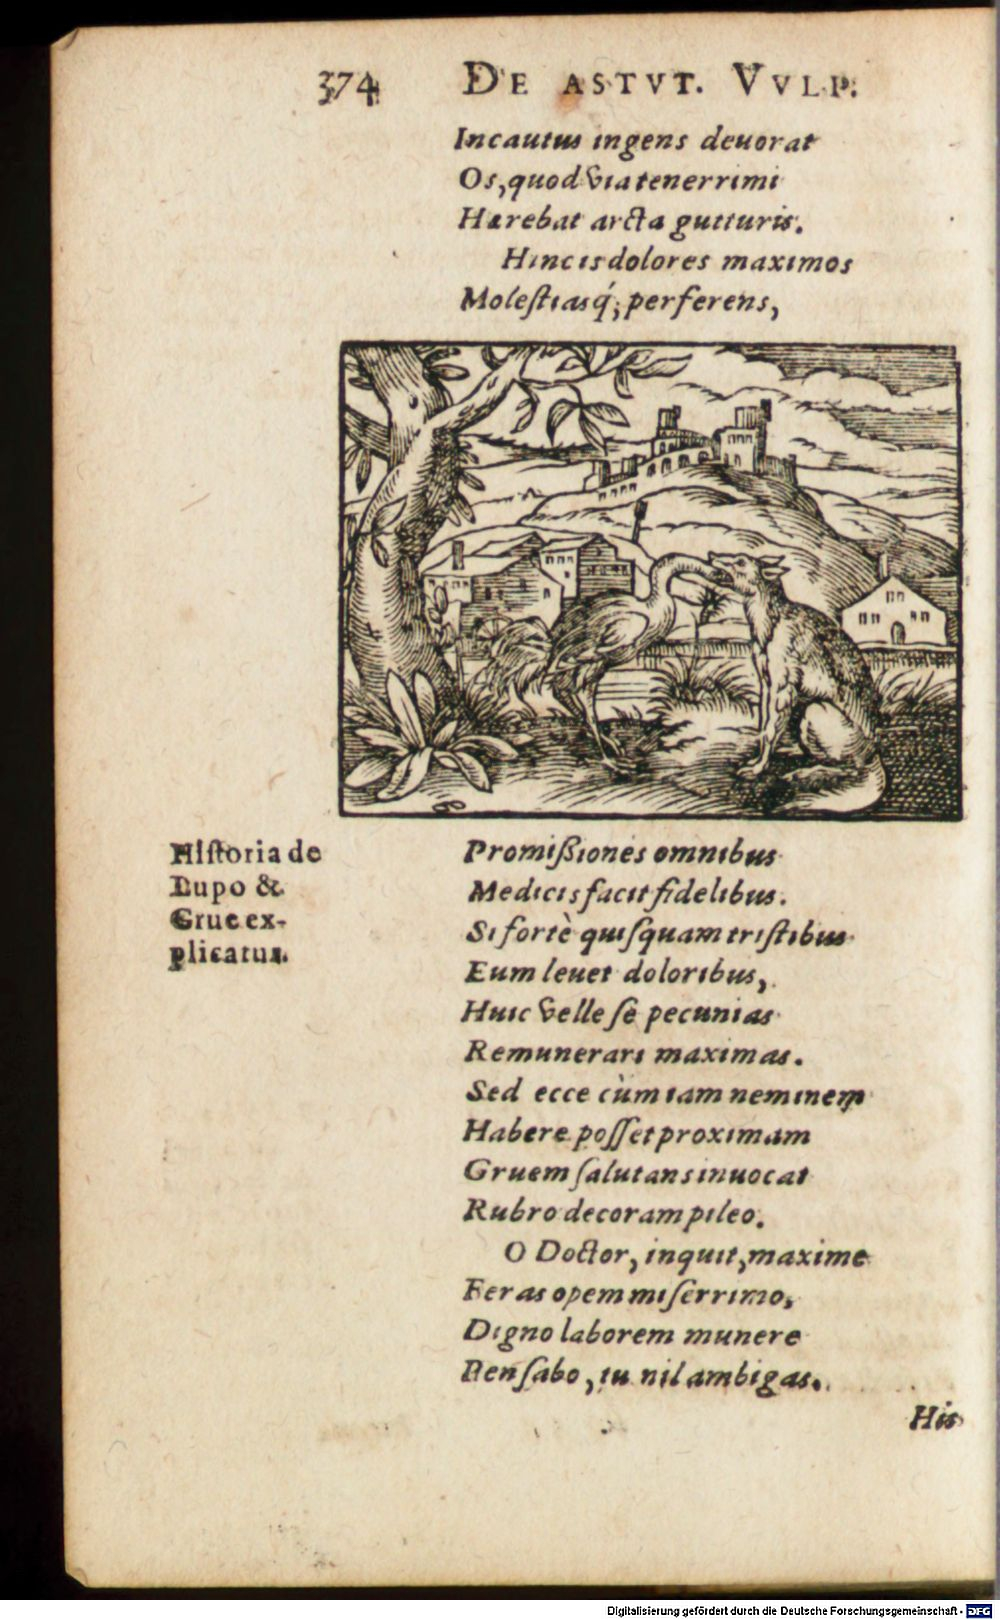 374 DE ASTVT. VVLP.
Incautus ingens deuorat
Os, quod via tenerrimi
Hærebat arcta gutturis.
Hinc is dolores maximos
Molestiasq́; perferens,
Historia de
Lupo &
Grue ex-
plicatur.
Promißiones omnibus
Medicis facit fidelibus.
Si fortè quisquam tristibus
Eum leuet doloribus,
Huic velle se pecunias
Remunerari maximas.
Sed ecce cùm iam neminem
Habere posset proximam
Gruem salutans inuocat
Rubro decoram pileo.
O Doctor, inquit, maxime
Feras opem miserrimo,
Digno laborem munere
Pensabo, tu nil ambigas.
His
Digitalisierung gefördert durch die Deutsche Forschungsgemeinschaft - DFG